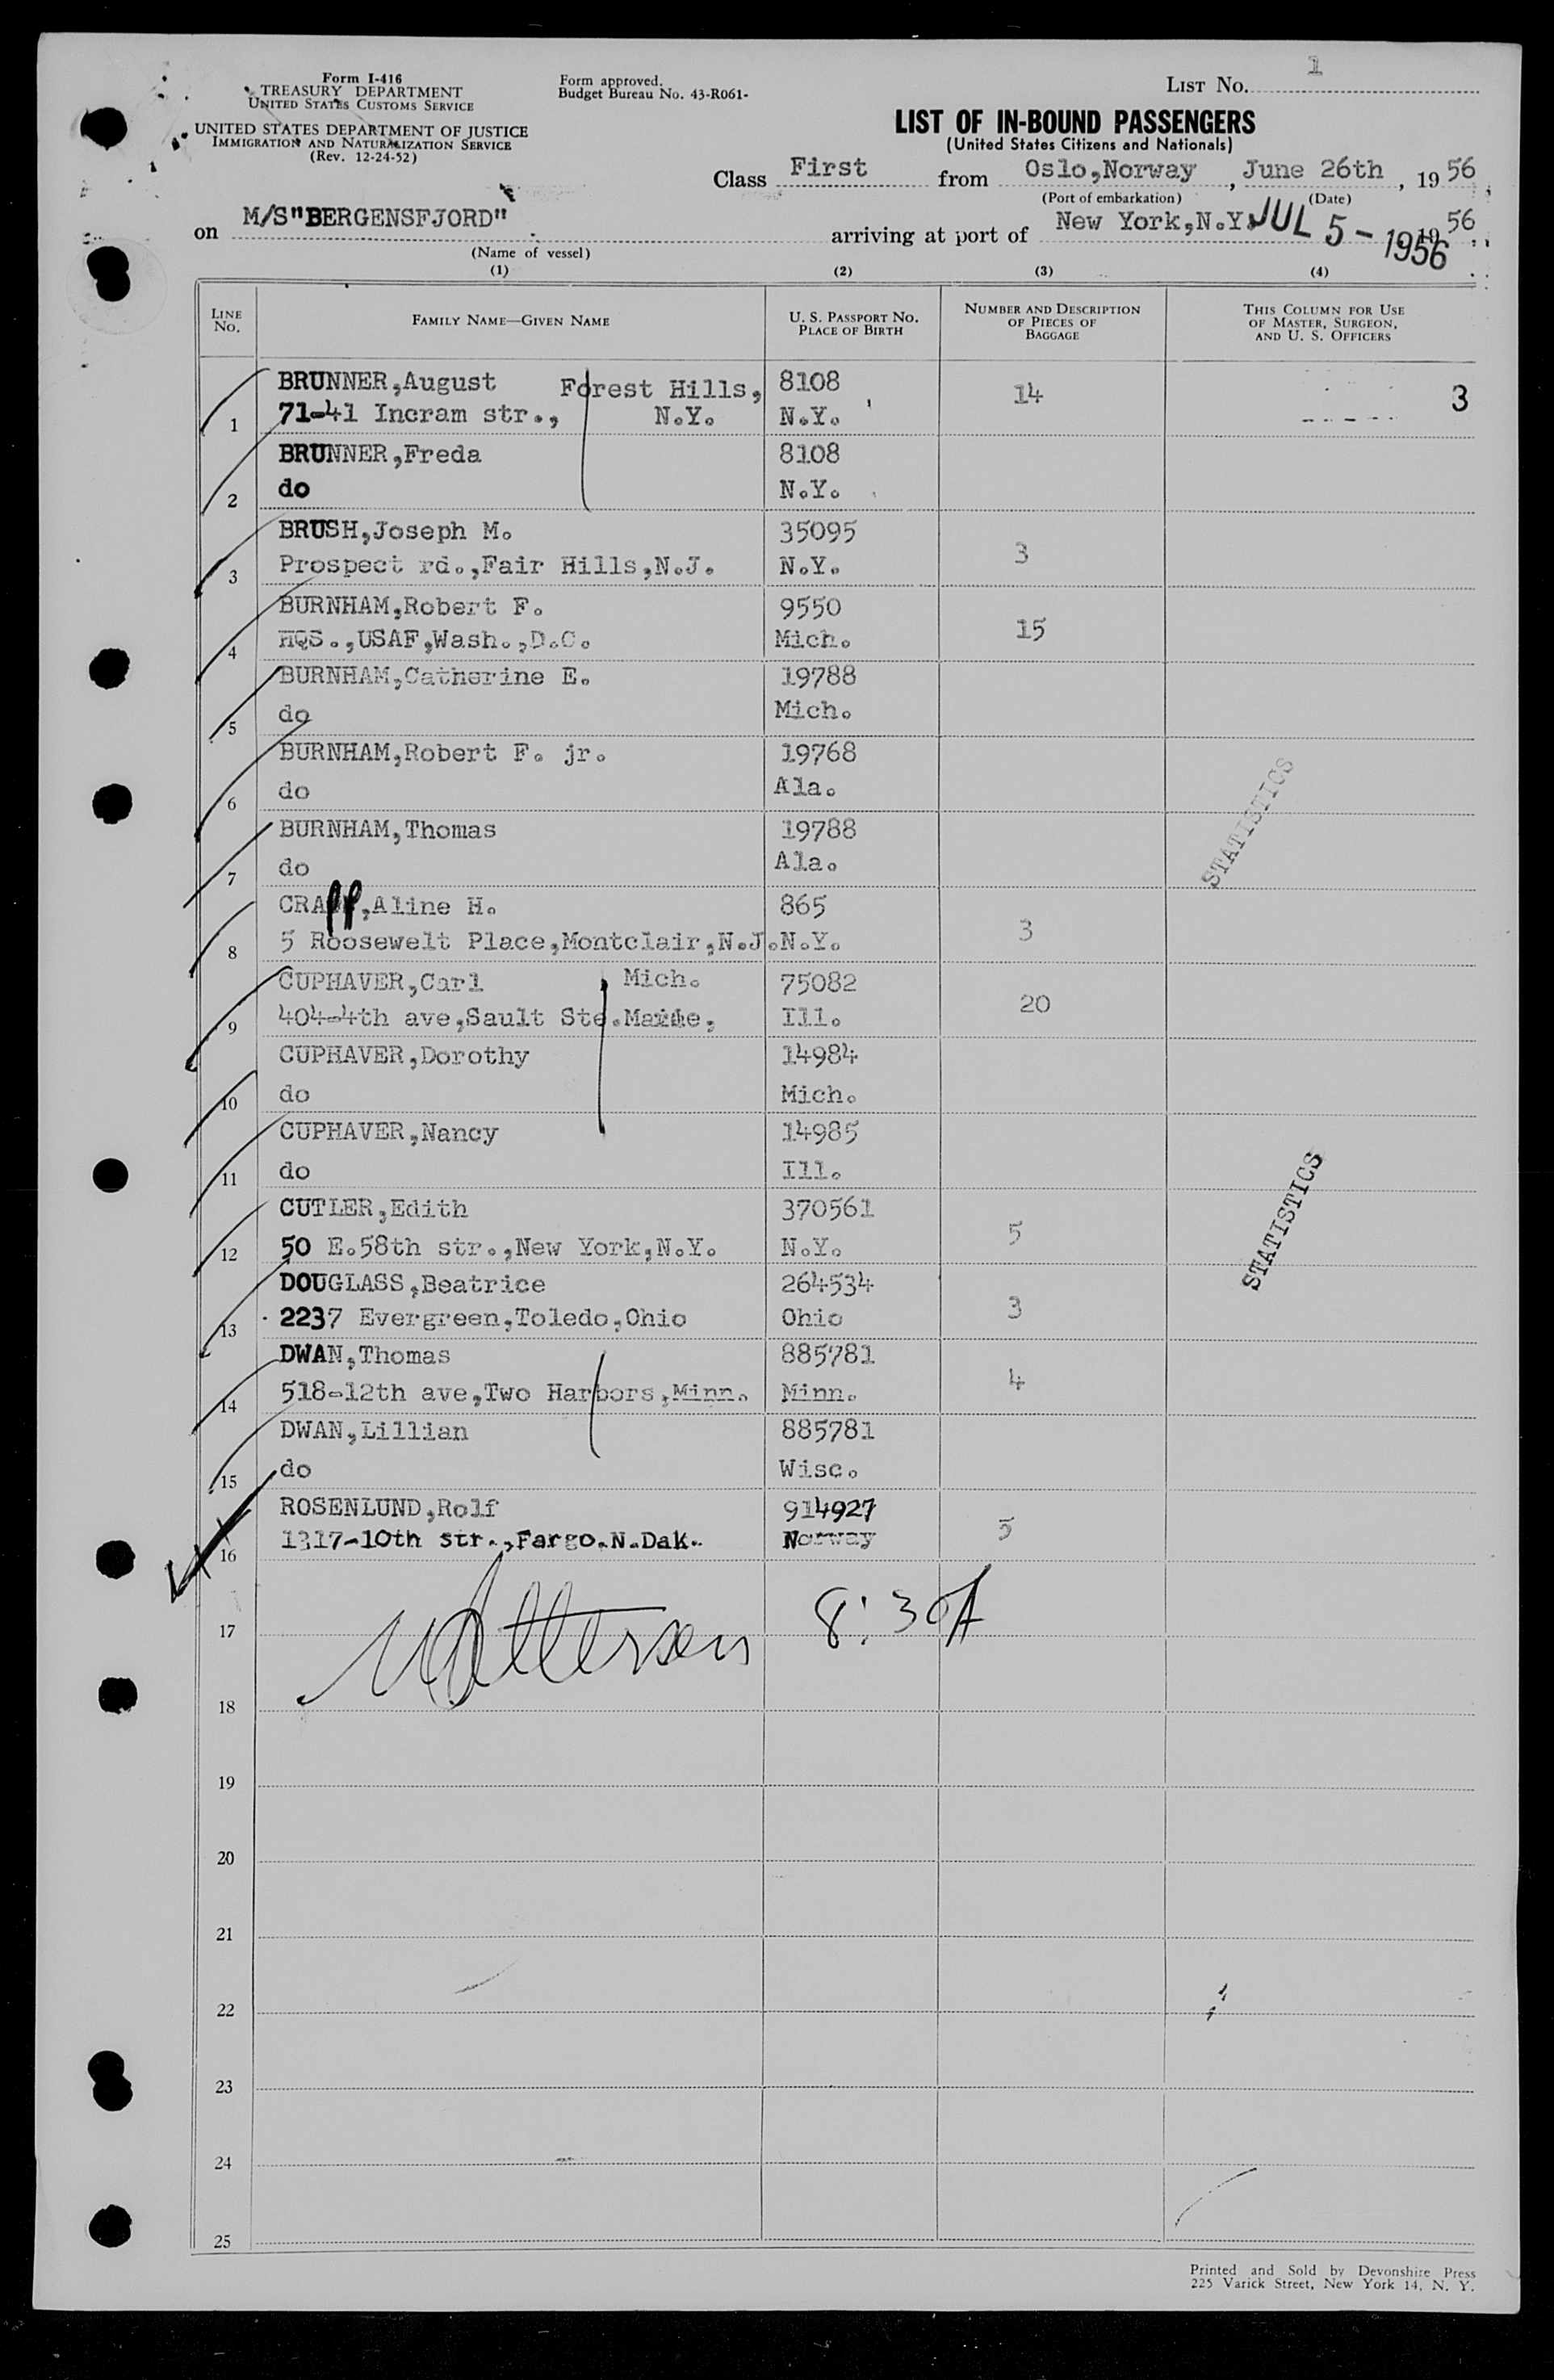 Form I-416
TREASURY DEPARTMENT
UNITED STATES CUSTOMS SERVICE
UNITED STATES DEPARTMENT OF JUSTICE
IMMIGRATION AND NATURALIZATION SERVICE
(Rev. 12-24-52)
Form approved.
Budget Bureau No. 43-R061-
LIST No. 1
LIST OF IN-BOUND PASSENGERS
(United States Citizens and Nationals)
Class First from Oslo,Norway, June 26th, 1956,
(Port of embarkation) (Date)
on M/S"BERGENSFJORD" arriving at port of New York,N.Y. JUL 5-1956 1956.
(Name of vessel)
(1) (2) (3) (4)
LINE No. FAMILY NAME—GIVEN NAME U. S. PASSPORT No. PLACE OF BIRTH NUMBER AND DESCRIPTION OF PIECES OF BAGGAGE THIS COLUMN FOR USE OF MASTER, SURGEON, AND U. S. OFFICERS
BRUNNER,August Forest Hills, 8108 14 3
1 71-41 Incram str., N.Y. N.Y.
BRUNNER,Freda 8108
2 do N.Y.
BRUSH,Joseph M. 35095 3
3 Prospect rd.,Fair Hills,N.J. N.Y.
BURNHAM,Robert F. 9550 15
4 HQS.,USAF,Wash.,D.C. Mich.
BURNHAM,Catherine E. 19788
5 do Mich.
BURNHAM,Robert F. jr. 19768
6 do Ala.
STATISTICS
BURNHAM,Thomas 19788
7 do Ala.
CRAPP,Aline H. 865 3
8 5 Roosewelt Place,Montclair,N.J. N.Y.
CUPHAVER,Carl Mich. 75082 20
9 404-4th ave,Sault Ste.Marie, Ill.
CUPHAVER,Dorothy 14984
10 do Mich.
CUPHAVER,Nancy 14985
11 do Ill.
STATISTICS
CUTLER,Edith 370561 5
12 50 E.58th str.,New York,N.Y. N.Y.
DOUGLASS,Beatrice 264534 3
13 2237 Evergreen,Toledo,Ohio Ohio
DWAN,Thomas 885781 4
14 518-12th ave,Two Harbors,Minn. Minn.
DWAN,Lillian 885781
15 do Wisc.
ROSENLUND,Rolf 914927 5
16 1317-10th str.,Fargo.N.Dak. Norway
8:30A
17
18
19
20
21
22
23
24
25
Printed and Sold by Devonshire Press
225 Varick Street, New York 14, N. Y.